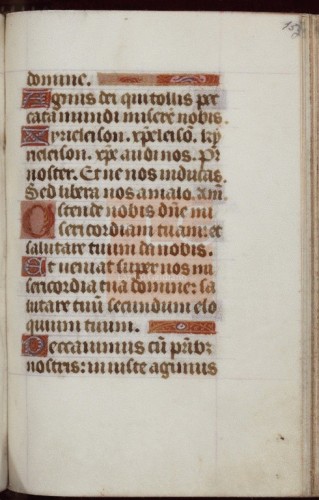 domine.
Agnus dei qui tollis pec
cata mundi miserē nobis.
Kyrieleison. xp̄eleisō. ky
rieleison. xp̄e audi nos. Pr̄
noster. Et ne nos inducas.
Sed libera nos a malo. Am̄.
Ostende nobis dn̄e mi
sericordiam tuam: et
salutare tuum da nobis.
Et veniat super nos mi
sericordia tua domine: sa
lutare tuū secundum elo
quium tuum.
Peccavimus cū pr̄ibꝫ
nostris: iniuste agimus